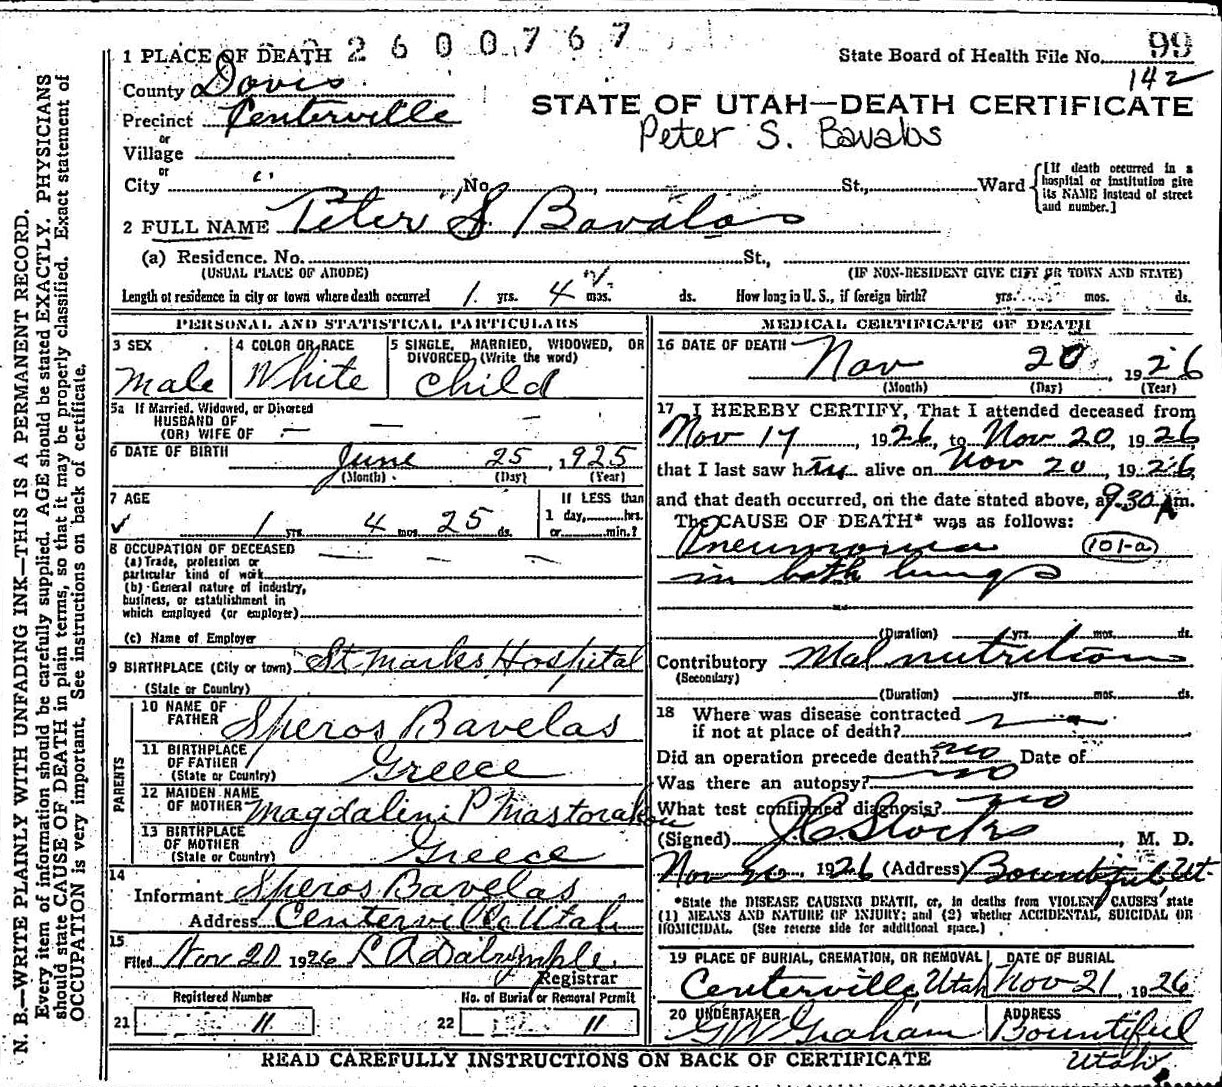 N. B.—WRITE PLAINLY WITH UNFADING INK—THIS IS A PERMANENT RECORD.
Every item of information should be carefully supplied. AGE should be stated EXACTLY. PHYSICIANS
should state CAUSE OF DEATH in plain terms, so that it may be properly classified. Exact statement of
OCCUPATION is very important. See instructions on back of certificate.
2600767
1 PLACE OF DEATH
State Board of Health File No. 99
142
County Davis
STATE OF UTAH—DEATH CERTIFICATE
Precinct Centerville
Peter S. Bavalos
or
Village
or
City " No. , St., Ward
[If death occurred in a hospital or institution give its NAME instead of street and number.]
2 FULL NAME Peter S Bavalas
(a) Residence. No. St.,
(USUAL PLACE OF ABODE) (IF NON-RESIDENT GIVE CITY OR TOWN AND STATE)
Length of residence in city or town where death occurred 1 yrs. 4 mos. ds. How long in U. S., if foreign birth? yrs. mos. ds.
PERSONAL AND STATISTICAL PARTICULARS
3 SEX
Male
4 COLOR OR RACE
White
5 SINGLE, MARRIED, WIDOWED, OR
DIVORCED (Write the word)
Child
5a If Married, Widowed, or Divorced
HUSBAND OF
(OR) WIFE OF — — —
6 DATE OF BIRTH June 25, 1925
(Month) (Day) (Year)
7 AGE
1 yrs. 4 mos. 25 ds.
If LESS than
1 day, hrs.
or min.?
8 OCCUPATION OF DECEASED — — —
(a) Trade, profession or
particular kind of work
(b) General nature of industry,
business, or establishment in
which employed (or employer)
(c) Name of Employer
9 BIRTHPLACE (City or town) St Marks Hospital
(State or Country)
PARENTS
10 NAME OF
FATHER Speros Bavelas
11 BIRTHPLACE
OF FATHER Greece
(State or Country)
12 MAIDEN NAME
OF MOTHER Magdalini P Mastorakou
13 BIRTHPLACE
OF MOTHER Greece
(State or Country)
14
Informant Speros Bavelas
Address Centerville Utah
15
Filed Nov 20 1926 L A Dalrymple
Registrar
Registered Number No. of Burial or Removal Permit
21 11 22 11
MEDICAL CERTIFICATE OF DEATH
16 DATE OF DEATH Nov 20, 1926
(Month) (Day) (Year)
17 I HEREBY CERTIFY, That I attended deceased from
Nov 17, 1926, to Nov 20, 1926,
that I last saw him alive on Nov 20, 1926,
and that death occurred, on the date stated above, at 9 30 A m.
The CAUSE OF DEATH* was as follows:
Pneumonia (101-a)
in both lungs
(Duration) yrs. mos. ds.
Contributory Mal nutrition
(Secondary)
(Duration) yrs. mos. ds.
18 Where was disease contracted
if not at place of death?
Did an operation precede death? no Date of
Was there an autopsy? no
What test confirmed diagnosis? no
(Signed) J C Stocks, M. D.
Nov 20, 1926 (Address) Bountiful, Ut.
*State the DISEASE CAUSING DEATH, or, in deaths from VIOLENT CAUSES state
(1) MEANS AND NATURE OF INJURY; and (2) whether ACCIDENTAL, SUICIDAL OR
HOMICIDAL. (See reverse side for additional space.)
19 PLACE OF BURIAL, CREMATION, OR REMOVAL
Centerville, Utah
DATE OF BURIAL
Nov 21, 1926
20 UNDERTAKER
G W Graham
ADDRESS
Bountiful
Utah.
READ CAREFULLY INSTRUCTIONS ON BACK OF CERTIFICATE